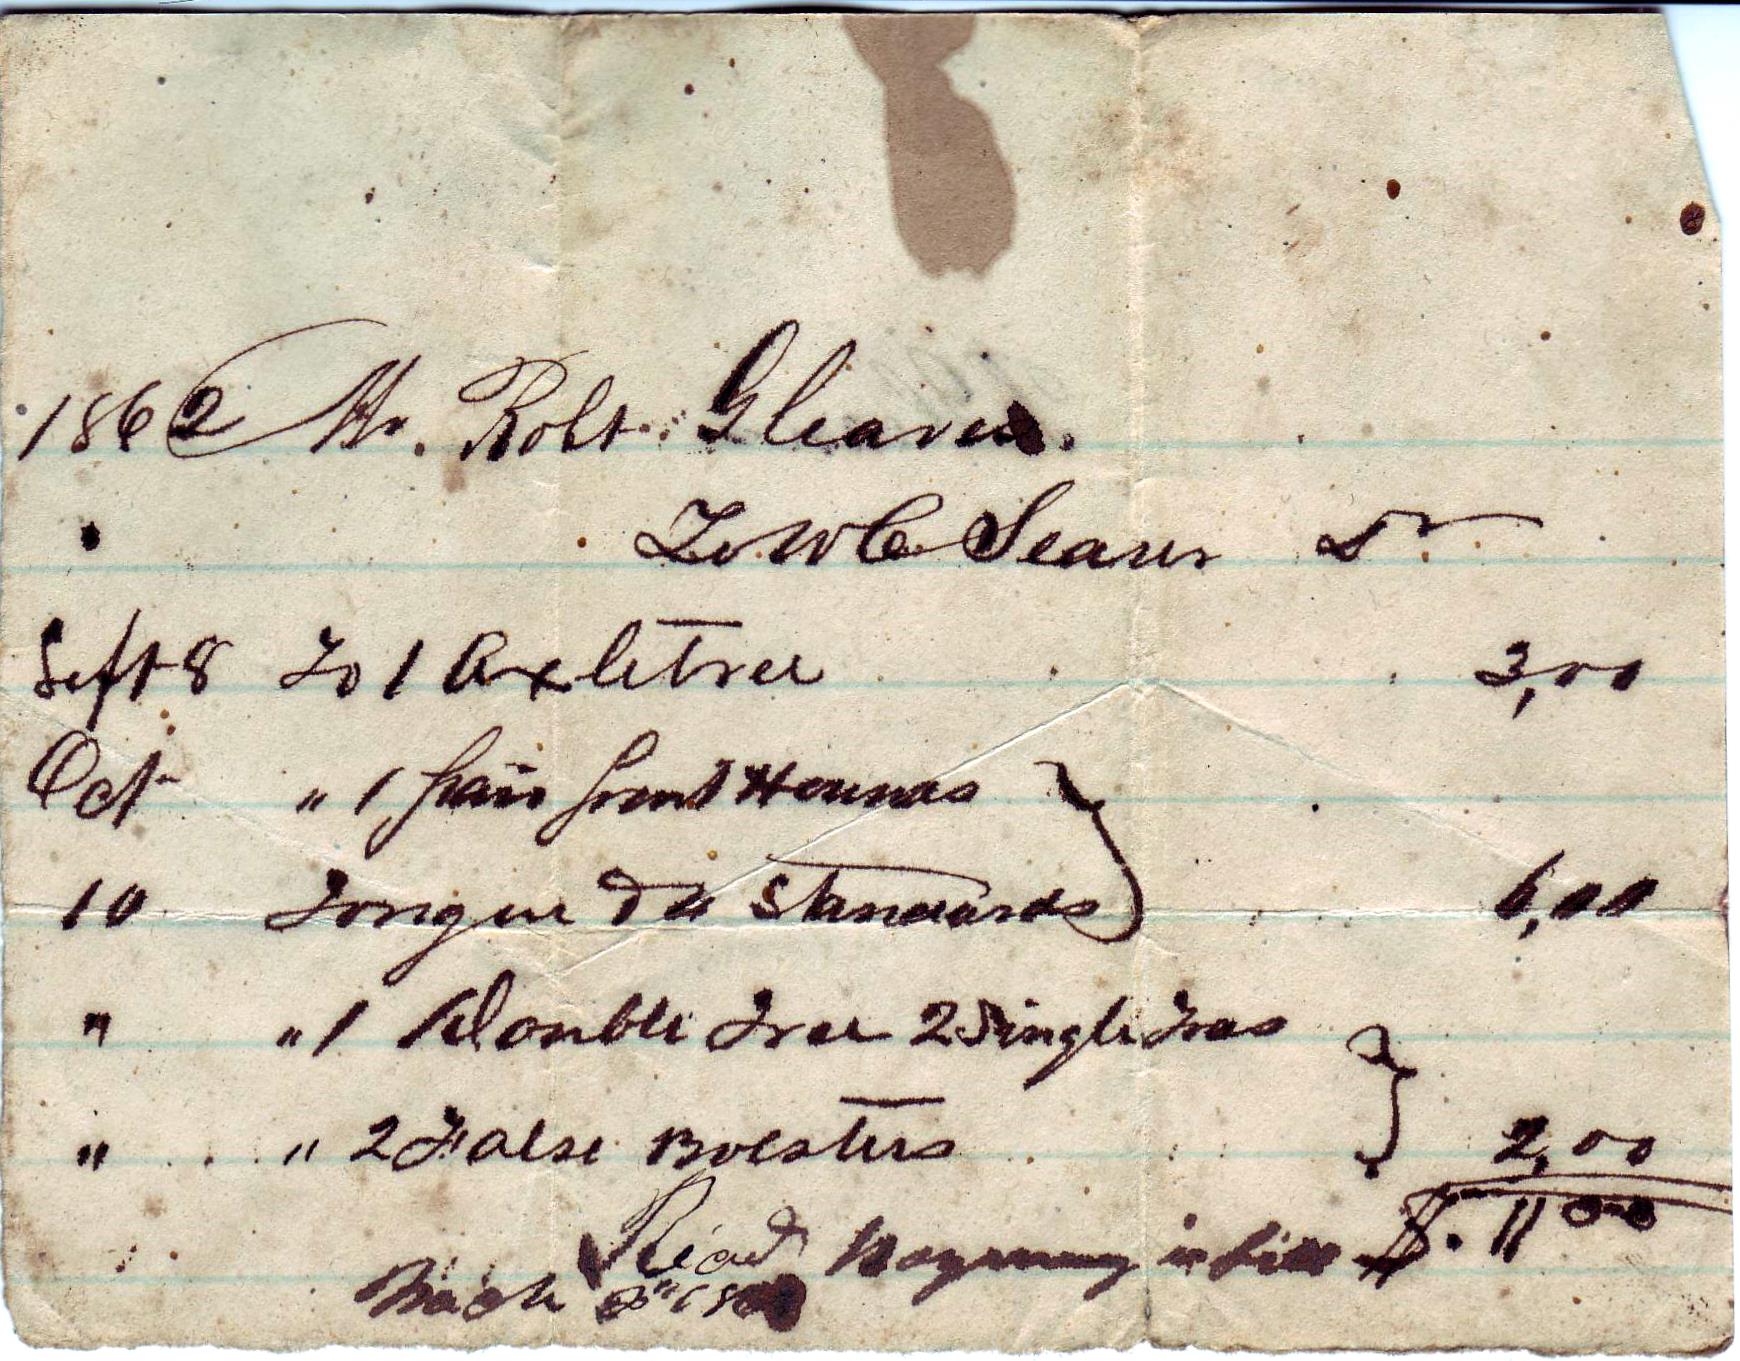 1862 Mr. Robt. Gleaves.
To W C Seaver Dr
Sept 8 To 1 Axletree 3,00
Oct " 1 pair front Hounds
10 Tongue & Standards 6,00
" " 1 Double Tree 2 Single Trees
" " 2 False Bolsters 2,00
$. 11 00
Recd payment in full
March